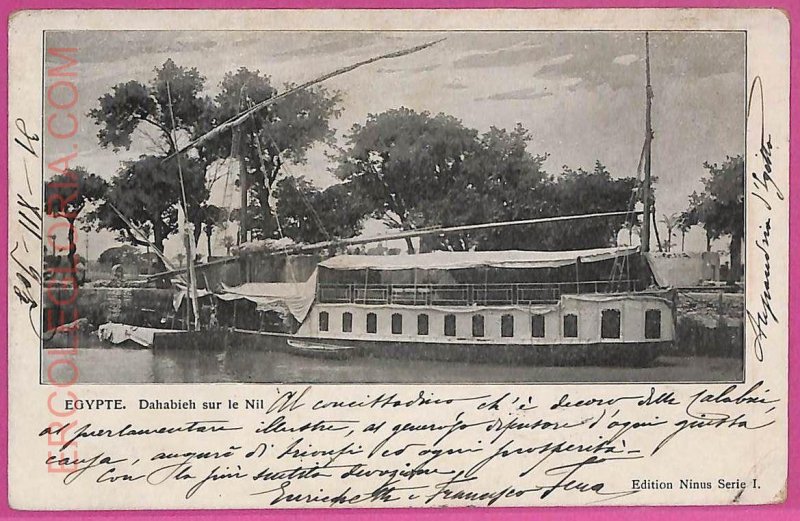 ERCOLEGLORIA.COM
31-XII-905
Alessandria d'Egitto
EGYPTE. Dahabieh sur le Nil
Al concittadino ch'è decoro della Calabria,
al parlamentare illustre, al generoso difensore d'ogni giusta
causa, auguri di trionfi ed ogni prosperità -
Con la più sentita devozione
Enrichetta e Francesco
Edition Ninus Serie I.